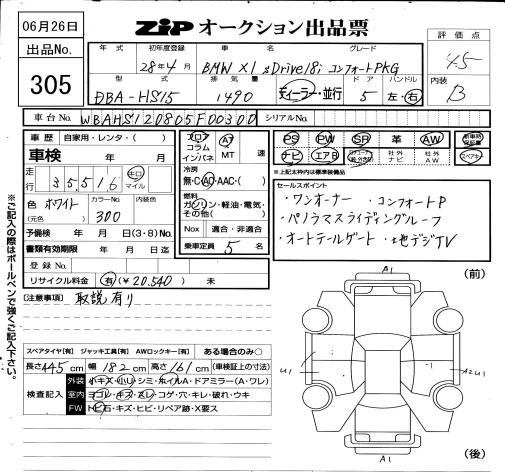 06月26日
ZIP オークション出品票
出品No.
305
年式 初年度登録 車名 グレード
28年4月 BMW X1 sDrive18i コンフォートPKG
型式 排気量 ドア ハンドル
DBA-HS15 1490 ディーラー・並行 5 左・右
評価点
4.5
内装
B
車台No. WBAHS120805F00300 シリアルNo.
車歴 自家用・レンタ・( )
車検 年 月
走行 35,516 キロ マイル
色 ホワイト カラーNo. 300 内装色
(元色)
予備検 年 月 日(3・8)No.
書類有効期限 年 月 日迄
登録No.
リサイクル料金 有(¥20.540) 未
フロア コラム インパネ
AT MT 速
冷房
無・C・AC・AAC・( )
燃料
ガソリン・軽油・電気・
その他( )
Nox 適合・非適合
乗車定員 5 名
PS PW SR 革 AW 新車時保証書
ナビ エアB 社外ナビ 社外AW スペアキー
※上記太枠内は標準装備品
セールスポイント
・ワンオーナー ・コンフォートP
・パノラマスライディングルーフ
・オートテールゲート ・地デジTV
※ご記入の際はボールペンで強くご記入下さい。
(注意事項) 取説有り
(前)
A1
U1
A2U1
A1
(後)
スペアタイヤ[有] ジャッキ工具[有] AWロックキー[有] ある場合のみ○
長さ445cm 幅182cm 高さ161cm (車検証上の寸法)
検査記入
外装 小キズ・小U・シミ・ホイルA・ドアミラー(A・ワレ)
室内 ヨゴレ・キズ・スレ・コゲ・穴・キレ・破れ・ウキ
FW トビ石・キズ・ヒビ・リペア跡・X要ス